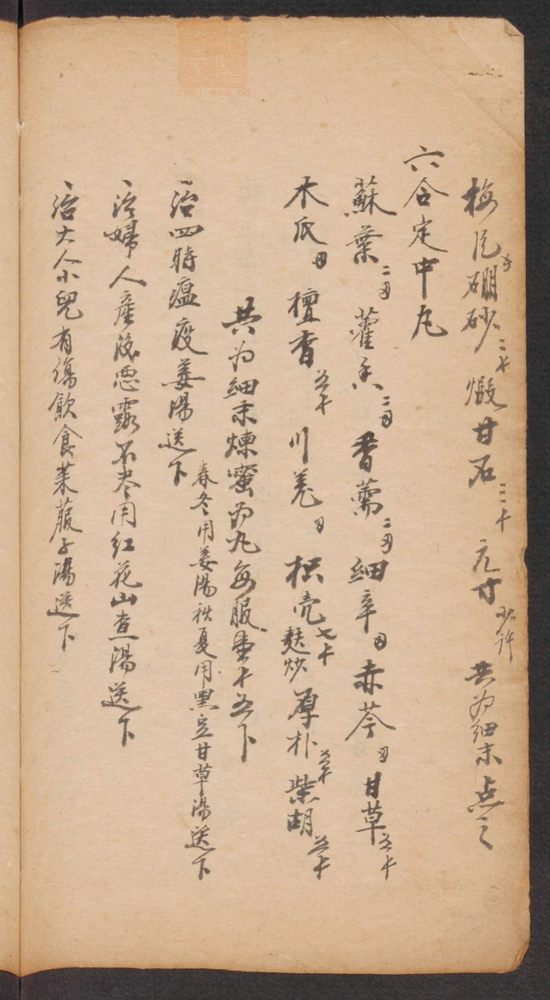 梅片 硼砂 煅甘石 元寸 共为細末点之
六合定中丸
蘇葉 藿香 香薷 細辛 赤苓 甘草
木瓜 檀香 川羌 枳壳 麩炒 厚朴 柴胡
共为細末煉蜜为丸每服重
治四時瘟疫姜湯送下
春冬用姜湯秋夏用黑豆甘草湯送下
治婦人產後恶露不尽用红花山查湯送下
治大人小兒有傷飲食萊菔子湯送下